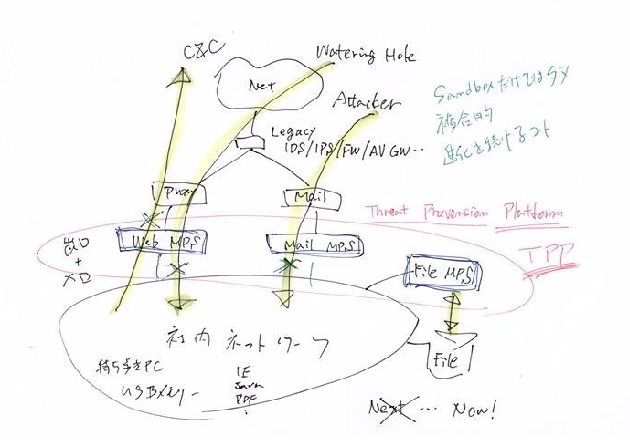 C&C
Watering Hole
Net
Attacker
Sandboxだけではダメ
複合的
進化を続ける
Legacy
IDS/IPS/FW/AV GW…
Proxy
Mail
Threat Prevension Platform
TPP
出口
+
入口
Web MPS
Mail MPS
File MPS
社内ネットワーク
持ち込みPC
USBメモリー
IE
Java
PDF
File
Next … Now!